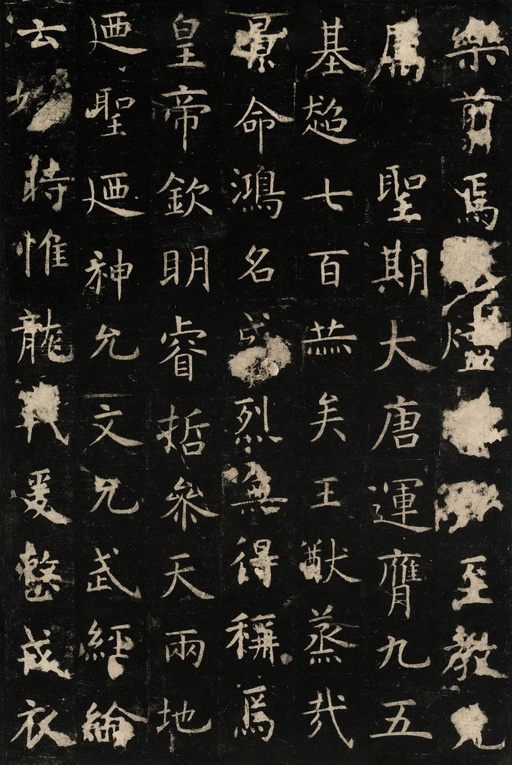 樂翦焉燼弘至教允
屬聖期大唐運膺九五
基超七百赫矣王猷蒸哉
景命鴻名盛烈無得稱焉
皇帝欽明睿哲參天兩地
迺聖迺神允文允武經綸
云始時惟龍戰爰整戎衣